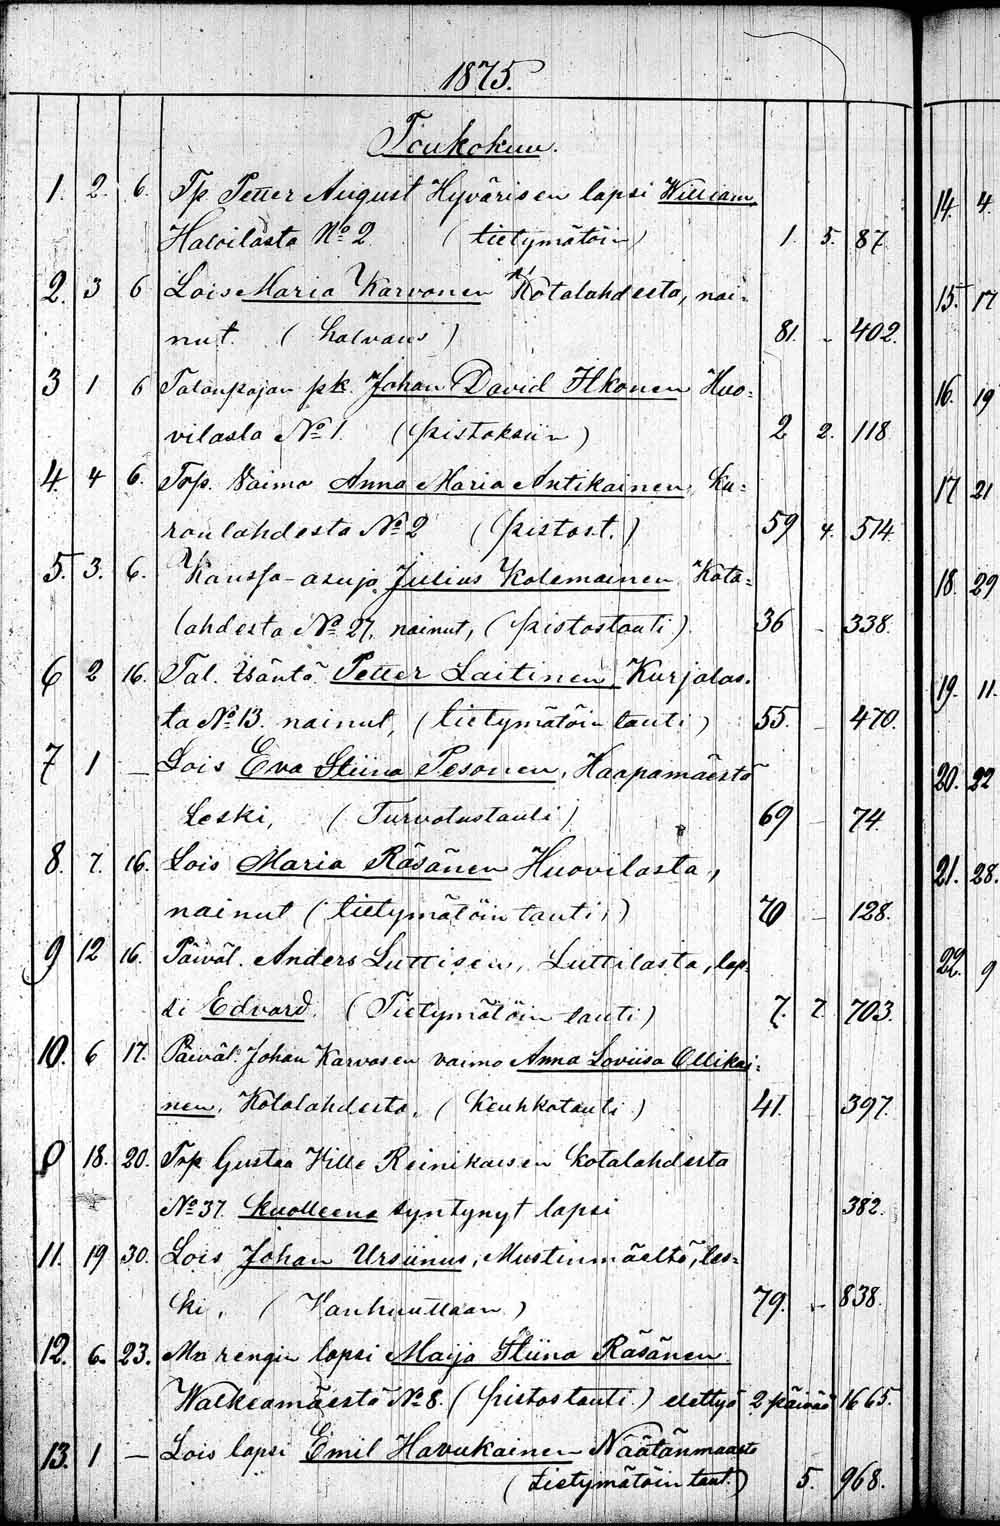 1875.
Toukokuu.
1. 2. 6. Tp. Petter August Hyvärisen lapsi William
Halvilasta No 2 (tietymätöin) 1. 5. 87.
2. 3 6 Lois Maria Karvonen Kotalahdesta, nai-
nut. (halvaus) 81. - 402.
3 1 6 Talonpojan pk. Johan David Ikonen Huo-
vilasta No 1. (pistoksiin) 2 2. 118.
4. 4 6. Trp. Vaimo Anna Maria Antikainen, Ku-
roulahdesta No 2 (pistost.) 59 4. 514.
5. 3. 6. Kansfa-asuja Julius Kolemainen Kota-
lahdesta No 27, nainut, (pistostauti) 36 - 338.
6 2 16. Tal. Isäntä Petter Laitinen, Kurjalas-
ta No 13. nainut, (tietymätöin tauti) 55. - 470.
7 1 - Lois Eva Stiina Pesonen, Haapamäestä
Leski, (Turvotustauti) 69 - 74.
8. 7. 16. Lois Maria Räsänen Huovilasta,
nainut (tietymätöin tauti,) 70 - 128.
9 12 16. Päiväl. Anders Luttisen, Luttilasta, lap-
si Edvard. (Tietymätöin tauti) 7. 7 703.
10. 6 17. Päiväl. Johan Karvosen vaimo Anna Loviisa Ollikai-
nen, Kotalahdesta. (Keuhkotauti) 41. 397.
0 18. 20. Trp Gustaa Wille Reinikaisen Kotalahdesta
No 37. Kuolleena syntynyt lapsi 382.
11. 19 30. Lois Johan Ursiinus, Mustinmäeltä, les-
ki, (Vanhuuttaan) 79. - 838.
12. 6. 23. Mn rengin lapsi Maija Stiina Räsänen
Walkeamäestä No 8. (pistostauti.) elettyä 2 päivää 1665.
13. 1 - Lois lapsi Emil Havukainen Näätänmaasta
(tietymätöin taut.) 5. 968.
14. 4.
15. 17
16. 19
17 21
18. 29
19. 11.
20. 22
21. 28.
22. 9